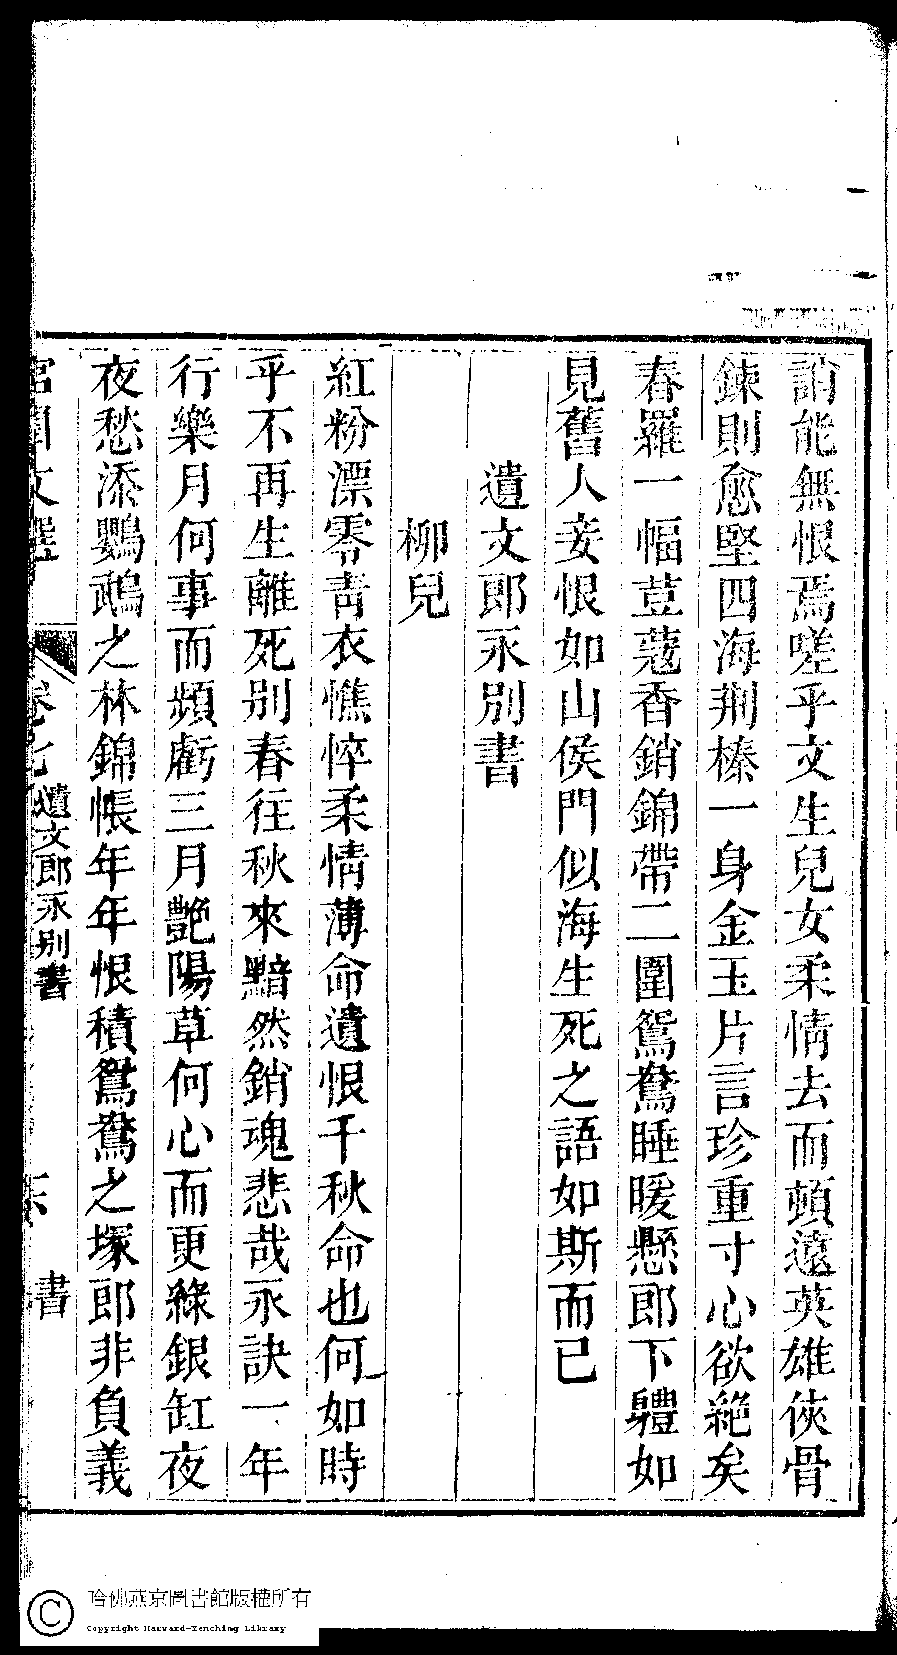 誚能無恨焉嗟乎文生兒女柔情去而頓遠英雄俠骨
鍊則愈堅四海荆榛一身金玉片言珍重寸心欲絶矣
春羅一幅荳蔻香銷錦帶二圍鴛鴦睡暖懸郎下軆如
見舊人妾恨如山侯門似海生死之語如斯而已
遺文郎永別書
柳兒
紅粉漂零青衣憔悴柔情薄命遺恨千秋命也何如時
乎不再生離死别春往秋來黯然銷魂悲哉永訣一年
行樂月何事而頻虧三月艶陽草何心而更綠銀缸夜
夜愁添鸚鵡之林錦帳年年恨積鴛鴦之塚郎非負義
宮閨文選
卷七
遺文郎永别書
書
哈佛燕京圖書館版權所有
Copyright Harvard-Yenching Library